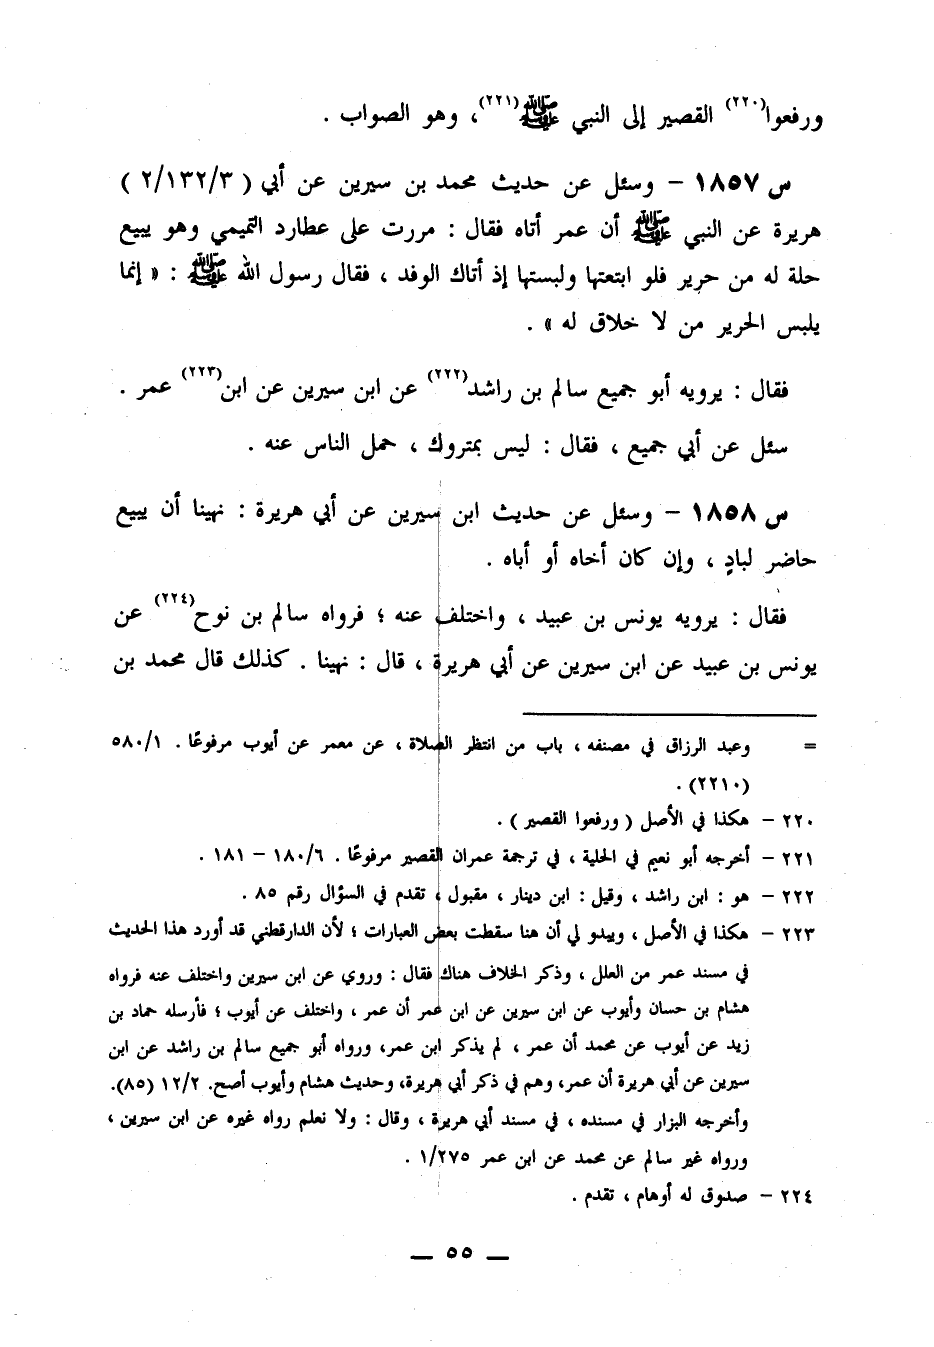 ورفعوا(٢٢٠) القصير إلى النبي ﷺ(٢٢١)، وهو الصواب .
س ١٨٥٧ - وسئل عن حديث محمد بن سيرين عن أبي ( ٢/١٣٢/٣ )
هريرة عن النبي ﷺ أن عمر أتاه فقال : مررت على عطارد التميمي وهو يبيع
حلة له من حرير فلو ابتعتها ولبستها إذ أتاك الوفد ، فقال رسول الله ﷺ : « إنما
يلبس الحرير من لا خلاق له » .
فقال : يرويه أبو جميع سالم بن راشد(٢٢٢) عن ابن سيرين عن ابن(٢٢٣) عمر .
سئل عن أبي جميع ، فقال : ليس بمتروك ، حمل الناس عنه .
س ١٨٥٨ - وسئل عن حديث ابن سيرين عن أبي هريرة : نهينا أن يبيع
حاضر لبادٍ ، وإن كان أخاه أو أباه .
فقال : يرويه يونس بن عبيد ، واختلف عنه ؛ فرواه سالم بن نوح(٢٢٤) عن
يونس بن عبيد عن ابن سيرين عن أبي هريرة ، قال : نهينا . كذلك قال محمد بن
= وعبد الرزاق في مصنفه ، باب من انتظر الصلاة ، عن معمر عن أيوب مرفوعًا . ٥٨٠/١
(٢٢١٠) .
٢٢٠ - هكذا في الأصل ( ورفعوا القصير ) .
٢٢١ - أخرجه أبو نعيم في الحلية ، في ترجمة عمران القصير مرفوعًا . ١٨٠/٦ - ١٨١ .
٢٢٢ - هو : ابن راشد ، وقيل : ابن دينار ، مقبول ، تقدم في السؤال رقم ٨٥ .
٢٢٣ - هكذا في الأصل ، ويبدو لي أن هنا سقطت بعض العبارات ؛ لأن الدارقطني قد أورد هذا الحديث
في مسند عمر من العلل ، وذكر الخلاف هناك فقال : وروي عن ابن سيرين واختلف عنه فرواه
هشام بن حسان وأيوب عن ابن سيرين عن ابن عمر أن عمر ، واختلف عن أيوب ؛ فأرسله حماد بن
زيد عن أيوب عن محمد أن عمر ، لم يذكر ابن عمر، ورواه أبو جميع سالم بن راشد عن ابن
سيرين عن أبي هريرة أن عمر، وهم في ذكر أبي هريرة، وحديث هشام وأيوب أصح. ١٢/٢ (٨٥).
وأخرجه البزار في مسنده ، في مسند أبي هريرة ، وقال : ولا نعلم رواه غيره عن ابن سيرين ،
ورواه غير سالم عن محمد عن ابن عمر ١/٢٧٥ .
٢٢٤ - صدوق له أوهام ، تقدم .
— ٥٥ —